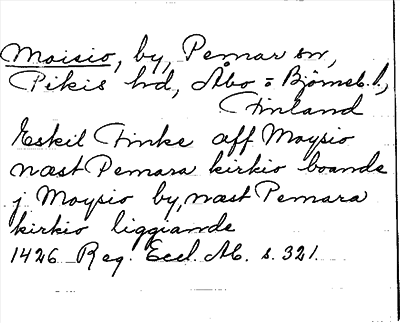 Moisio, by, Pemar sn,
Pikis hd, Åbo = Björneb. l.,
Finland
Eskil Finke aff Moysio
næst Pemara kirkio boande
j Moysio by, næst Pemara
kirkio liggiande
1426 Reg. Eccl. Ab. s. 321.